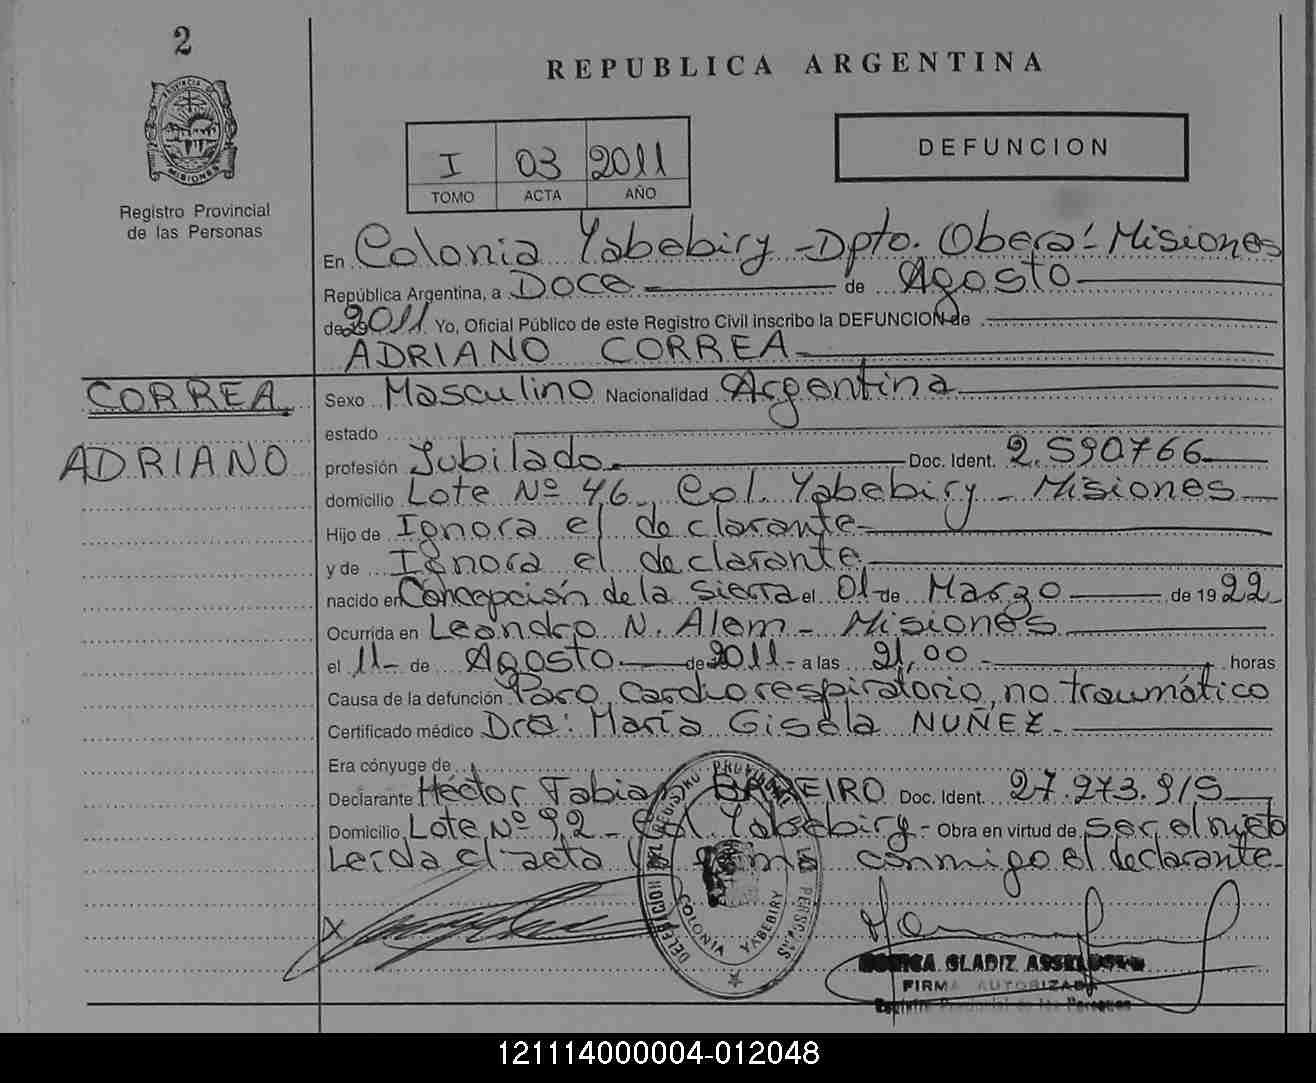 2
PROVINCIA DE
MISIONES
Registro Provincial
de las Personas
REPUBLICA ARGENTINA
I 03 2011
TOMO ACTA AÑO
DEFUNCION
En Colonia Yabebiry - Dpto. Oberá - Misiones
República Argentina, a Doce de Agosto
de 2011 Yo, Oficial Público de este Registro Civil inscribo la DEFUNCION de
ADRIANO CORREA
CORREA
ADRIANO
Sexo Masculino Nacionalidad Argentina
estado
profesión Jubilado. Doc. Ident. 2.590766
domicilio Lote Nº 46 - Col. Yabebiry - Misiones
Hijo de Ignora el declarante
y de Ignora el declarante
nacido en Concepción de la Sierra el 01 de Marzo de 1922
Ocurrida en Leandro N. Alem - Misiones
el 11 - de Agosto de 2011 - a las 21,00 horas
Causa de la defunción Paro cardiorespiratorio, no traumático
Certificado médico Dra: María Gisela NUÑEZ.
Era cónyuge de
Declarante Héctor Fabian BARREIRO Doc. Ident. 27.273.915
Domicilio Lote Nº 92 - Col. Yabebiry - Obra en virtud de ser el nieto
Leída el acta firma conmigo el declarante
COLONIA YABEBIRY
MONICA GLADIZ
FIRMA AUTORIZADA
Registro Provincial de las Personas
121114000004-012048